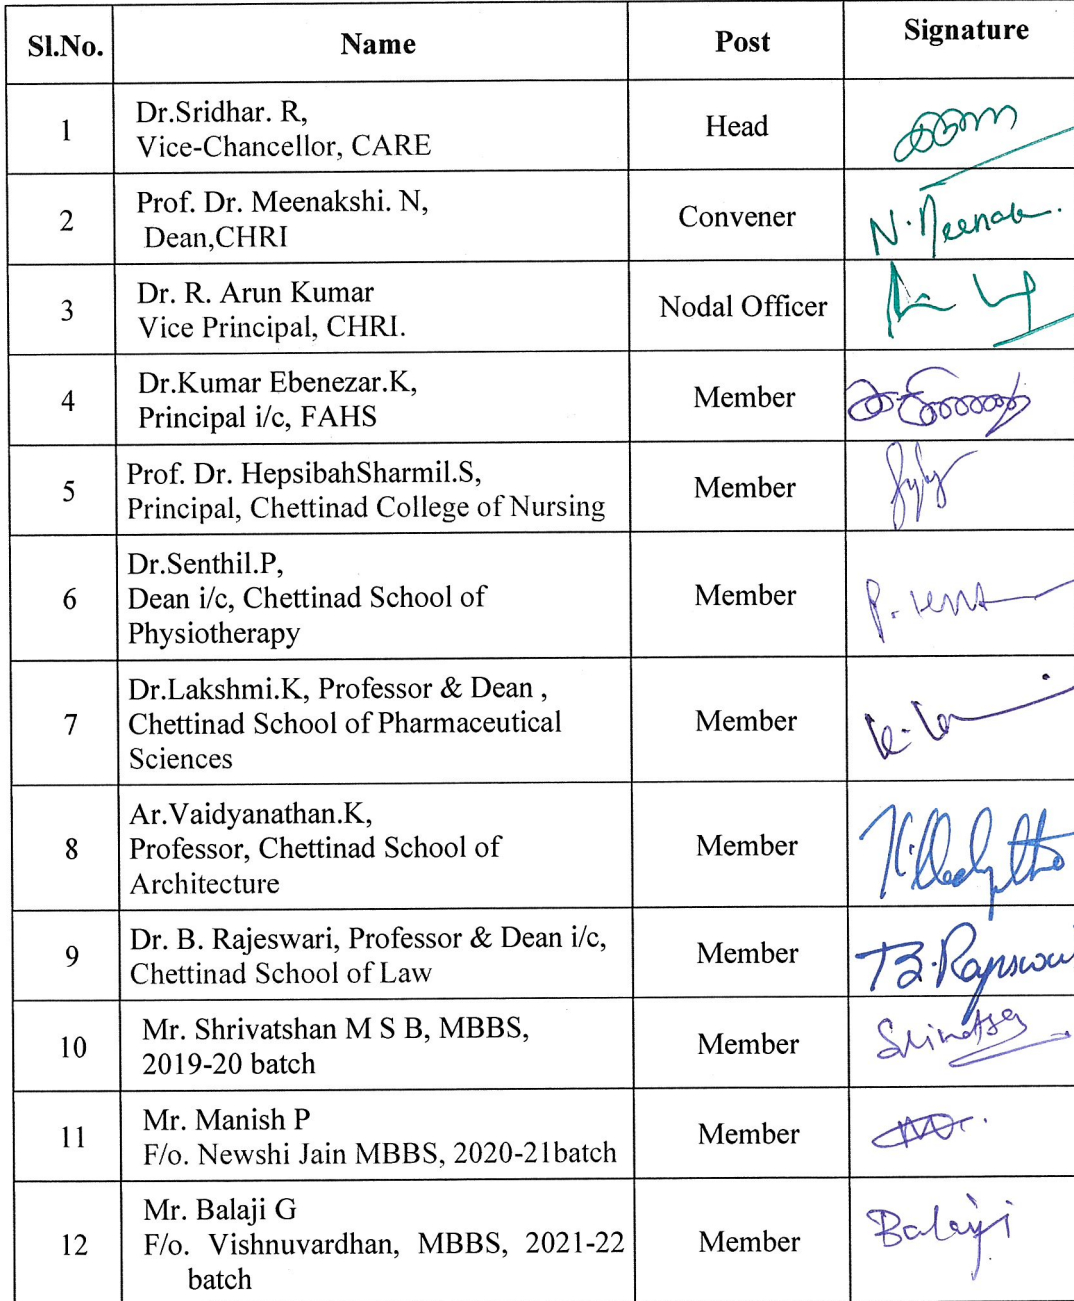 Sl.No. Name Post Signature
1 Dr.Sridhar. R,
Vice-Chancellor, CARE Head
2 Prof. Dr. Meenakshi. N,
Dean,CHRI Convener N.Meenak.
3 Dr. R. Arun Kumar
Vice Principal, CHRI. Nodal Officer
4 Dr.Kumar Ebenezar.K,
Principal i/c, FAHS Member
5 Prof. Dr. HepsibahSharmil.S,
Principal, Chettinad College of Nursing Member
6 Dr.Senthil.P,
Dean i/c, Chettinad School of
Physiotherapy Member
7 Dr.Lakshmi.K, Professor & Dean ,
Chettinad School of Pharmaceutical
Sciences Member
8 Ar.Vaidyanathan.K,
Professor, Chettinad School of
Architecture Member
9 Dr. B. Rajeswari, Professor & Dean i/c,
Chettinad School of Law Member
10 Mr. Shrivatshan M S B, MBBS,
2019-20 batch Member
11 Mr. Manish P
F/o. Newshi Jain MBBS, 2020-21batch Member
12 Mr. Balaji G
F/o. Vishnuvardhan, MBBS, 2021-22
batch Member Balaji